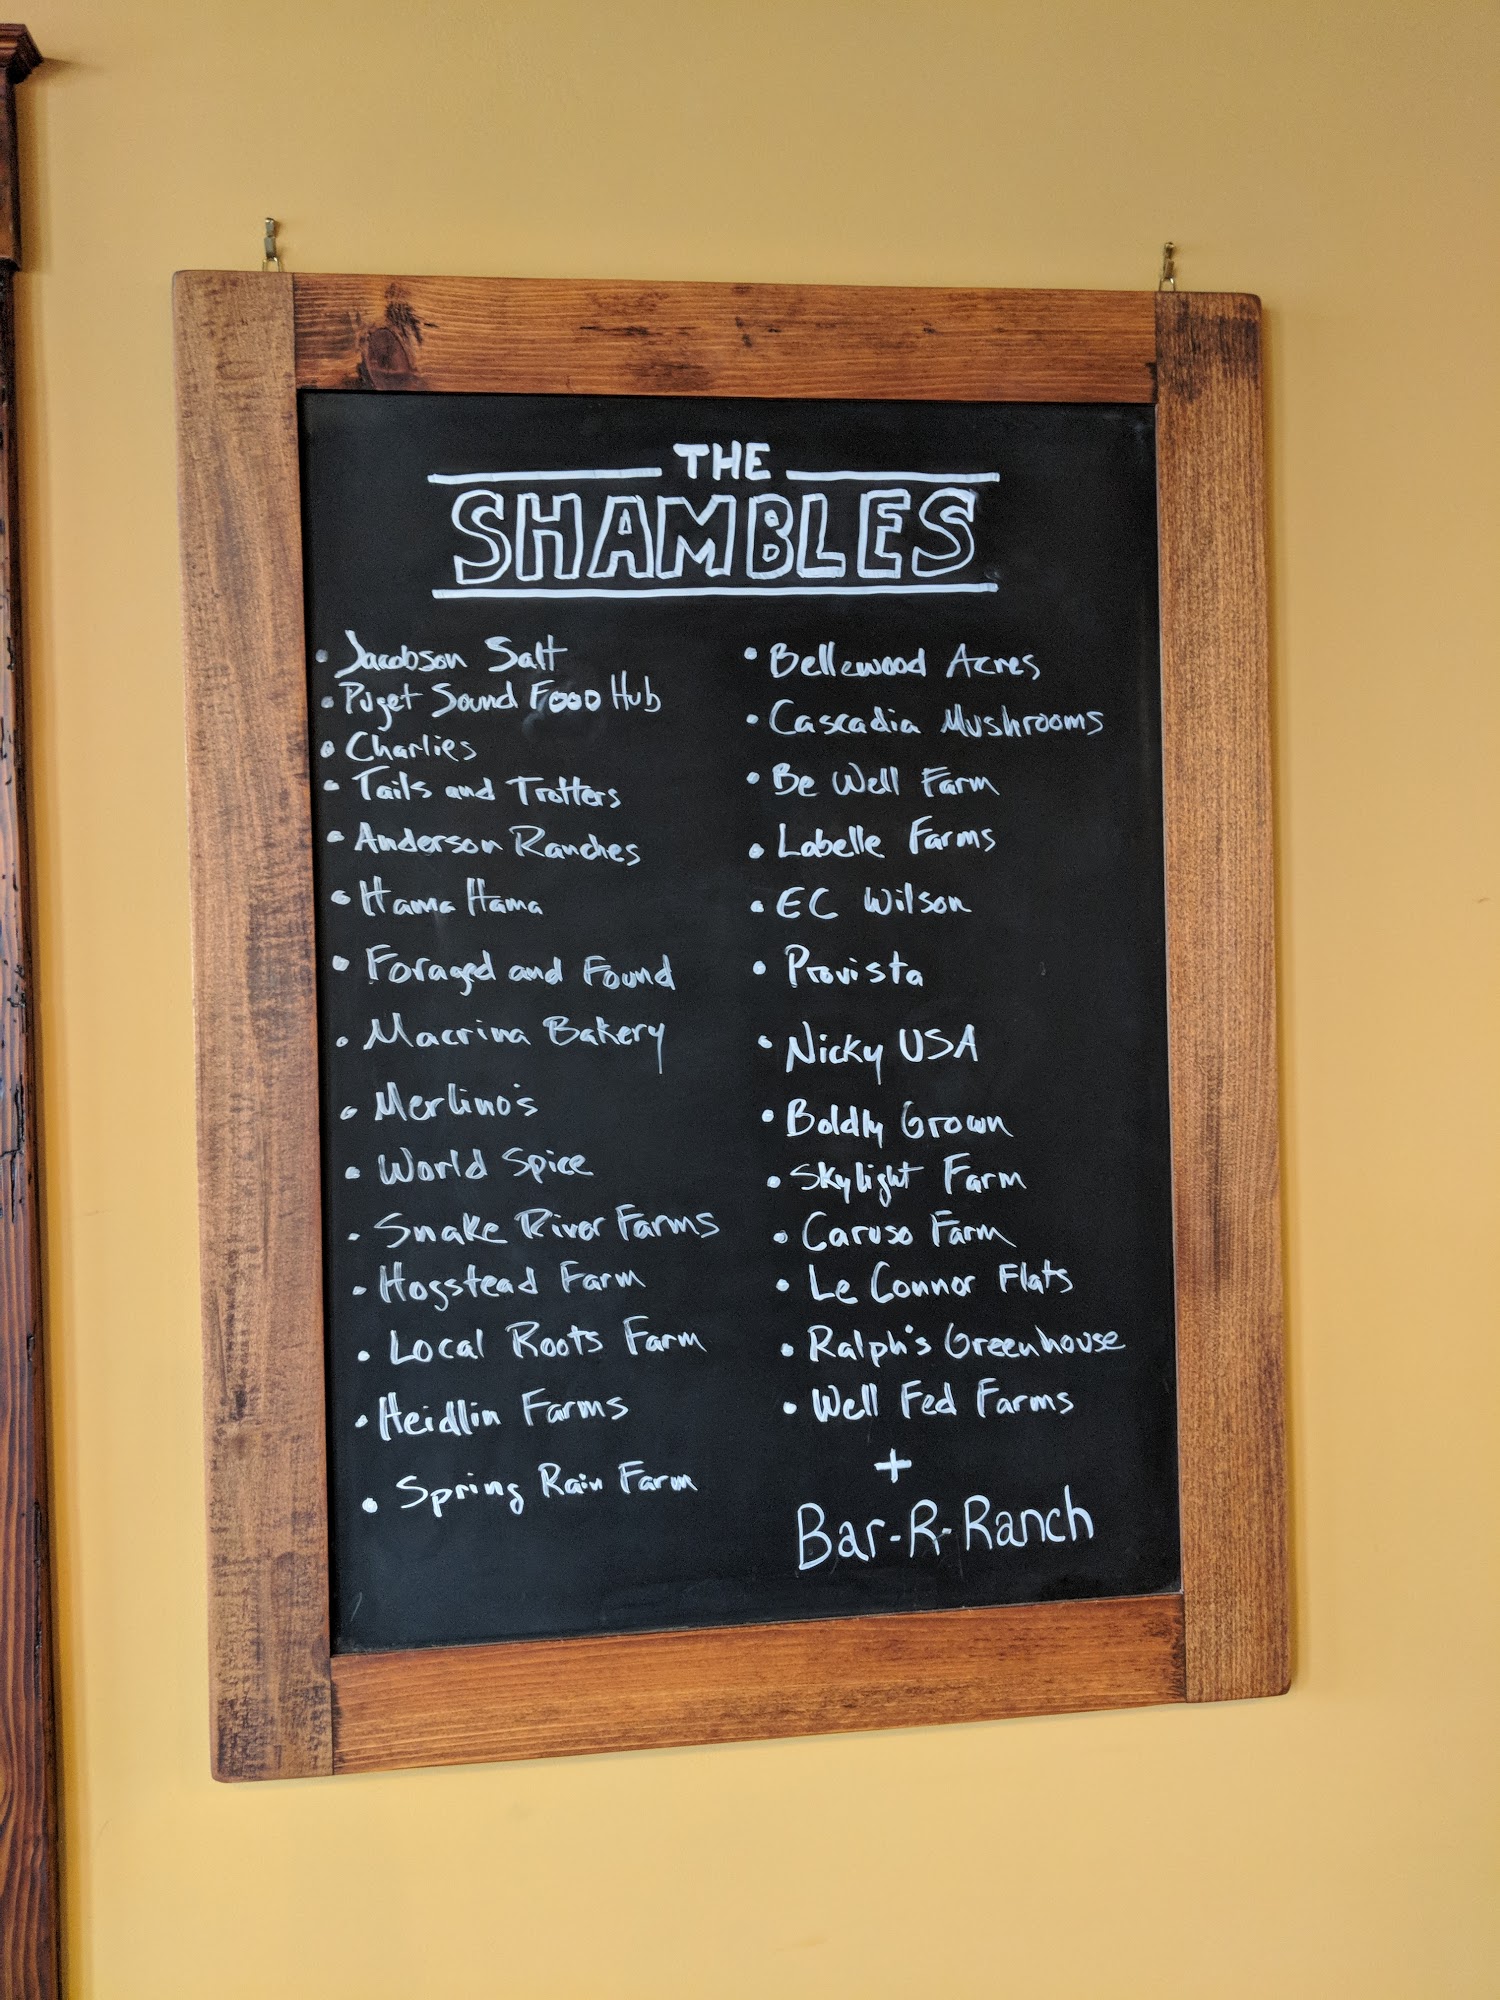 THE
SHAMBLES
• Jacobson Salt
• Puget Sound Food Hub
• Charlies
• Tails and Trotters
• Anderson Ranches
• Hama Hama
• Foraged and Found
• Macrina Bakery
• Merlino's
• World Spice
• Snake River Farms
• Hogstead Farm
• Local Roots Farm
• Heidlin Farms
• Spring Rain Farm
• Bellewood Acres
• Cascadia Mushrooms
• Be Well Farm
• Labelle Farms
• EC Wilson
• Provista
• Nicky USA
• Boldly Grown
• Skylight Farm
• Caruso Farm
• Le Connor Flats
• Ralph's Greenhouse
• Well Fed Farms
+
Bar-R-Ranch